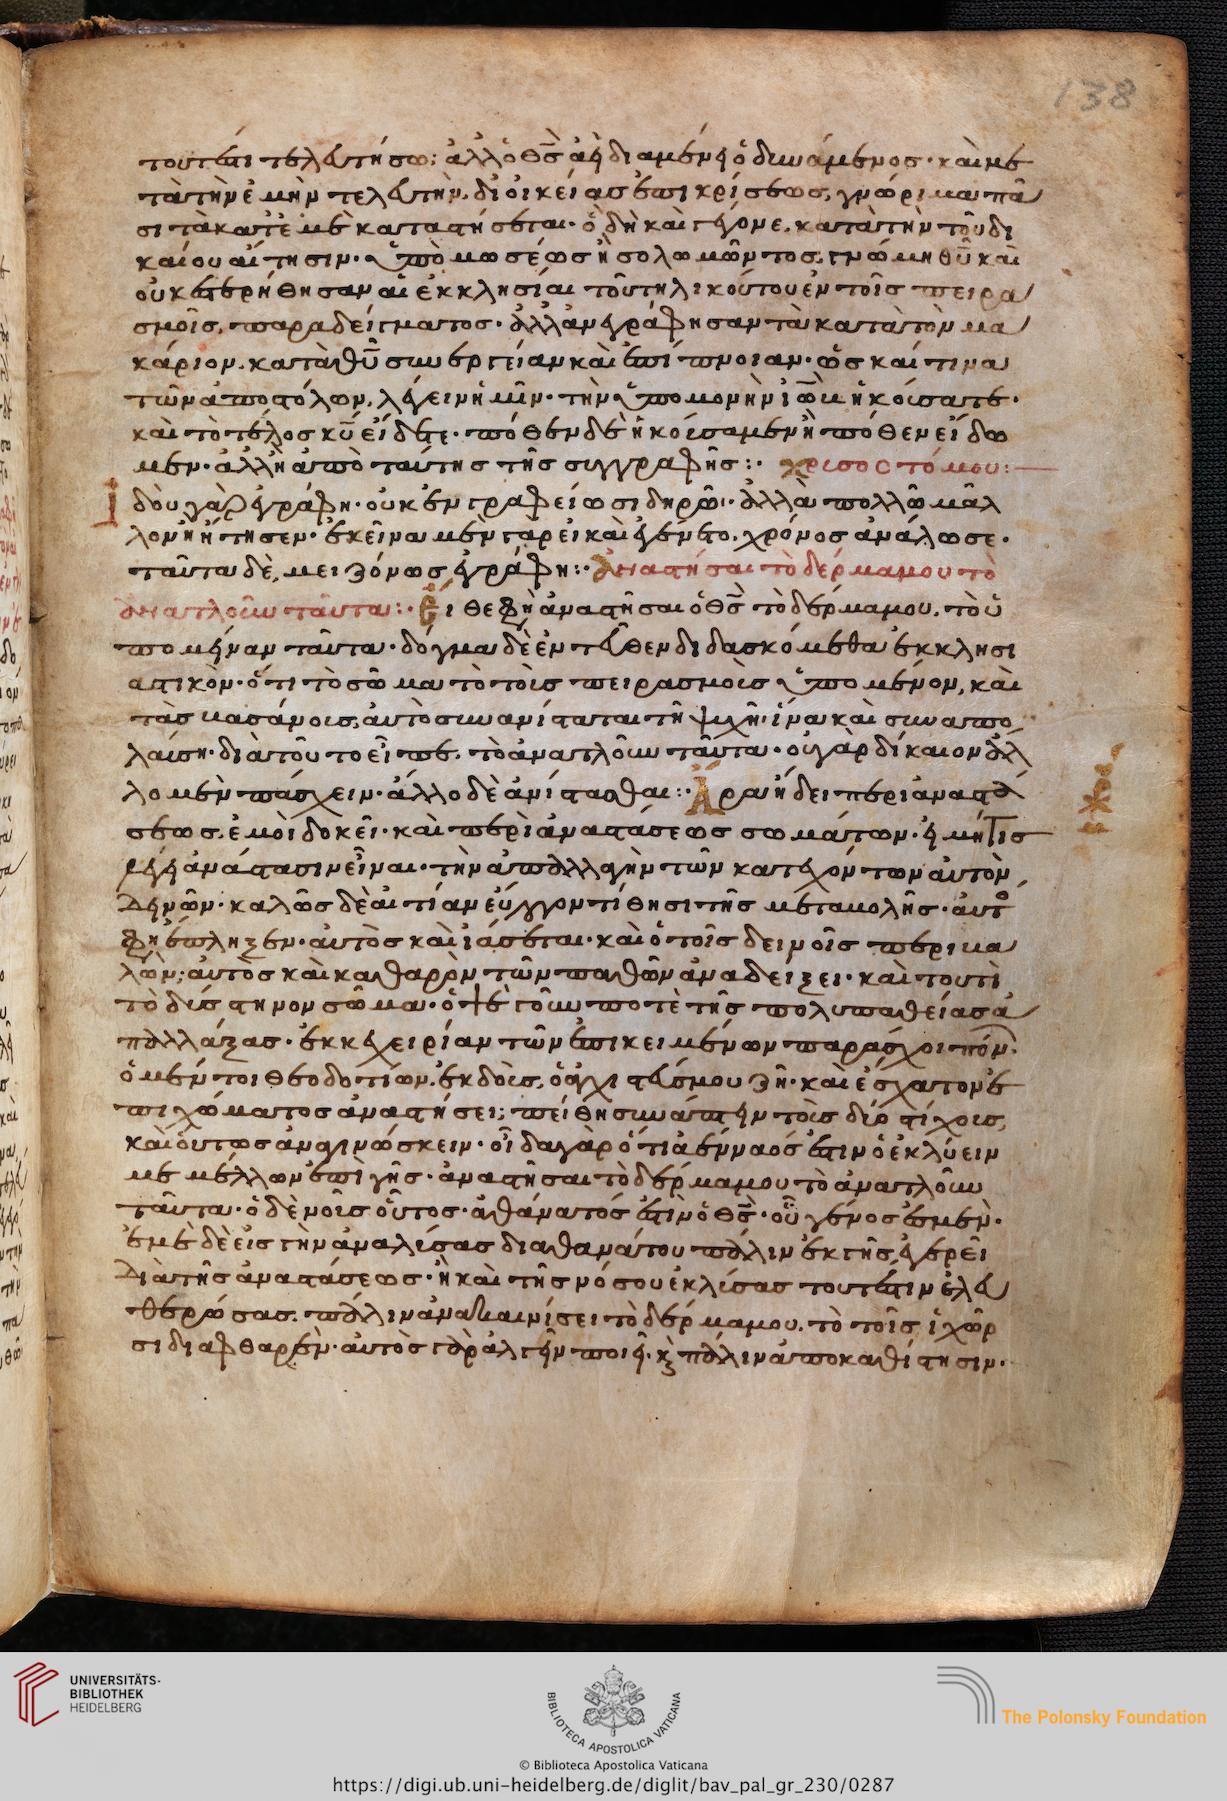 138
τουτέστι τελευτήσω; ἀλλ' ὁ θς ἀεὶ διαμένει ὁ δυνάμενος· καὶ με
τὰ τὴν ἐμὴν τελευτὴν, δι' οἰκείας ἐπικρίσεως, γνώριμα πᾶ
σι τὰ κατ' ἐμὲ καταστήσεται· ὃ δὴ καὶ γέγονε, κατὰ τὴν τοῦ δι
καίου αἴτησιν· ὑπὸ μωσέως ἢ σολωμῶντος, γνώμη θυ καὶ
οὐκ ἐστερήθησαν αἱ ἐκκλησίαι τοῦ τηλικούτου ἐν τοῖς πειρα
σμοῖς, παραδείγματος· ἀλλ' ἀνεγράφησαν τὰ κατὰ τὸν μα
κάριον, κατὰ θυ συνεργείαν καὶ ἐπίπνοιαν· ὥς καί τινα
τῶν ἀποστόλων, λέγειν ἡμῖν· τὴν ὑπομονὴν ἰὼβ ἠκούσατε·
καὶ τὸ τέλος κυ εἴδετε· πόθεν δὲ ἠκούσαμεν ἢ πόθεν εἴδο
μεν· ἀλλ' ἢ ἀπὸ ταύτης τῆς συγγραφῆς:· χρυσοστόμου:
Ἰδοὺ γὰρ ἐγράφη· οὐκ ἐν γραφείω σιδηρῶ· ἀλλὰ πολλῶ μᾶλ
λον ἢ ἤτησεν· ἐκεῖνα μὲν γὰρ εἰ καὶ ἐγένετο, χρόνος ἀνάλωσε·
ταῦτα δὲ, μειζόνως ἐγράφη:· Ἀναστῆσαι τὸ δέρμα μου τὸ
ἀναντλοῦν ταῦτα:· Εἴθε δὴ ἀναστῆσαι ὁ θς τὸ δέρμα μου, τὸ ὑ
πομεῖναν ταῦτα· δόγμα δὲ ἐντεῦθεν διδασκόμεθα ἐκκλησι
αστικὸν· ὅτι τὸ σῶμα τὸ τοῖς πειρασμοῖς ὑπομένον, καὶ
τὰς βασάνοις, αὐτὸ συνανίσταται τῆ ψυχῆ· ἵνα καὶ συναπο
λαύση· διὰ τοῦτο εἶπε, τὸ ἀναντλοῦν ταῦτα· οὐ γὰρ δίκαιον ἄλ
λο μὲν πάσχειν· ἄλλο δὲ ἀνίστασθαι:· Ἆρα ἤδει περὶ ἀναστά
σεως, ἐμοὶ δοκεῖ· καὶ περὶ ἀναστάσεως σωμάτων· εἰ μή τις
λέγει ἀνάστασιν εἶναι· τὴν ἀπαλλαγὴν τῶν κατεχόντων αὐτὸν
δεινῶν· καλῶς δὲ αἰτίαν εὔλογον τίθησι τῆς μεταβολῆς· αὐτὸ
δὴ ἔπληξεν· αὐτὸς καὶ ἰάσεται· καὶ ὁ τοῖς δεινοῖς περιβα
λὼν; αὐτὸς καὶ καθαρὸν τῶν παθῶν ἀναδείξει· καὶ τουτὶ
τὸ δύστηνον σῶμα· ὀψὲ γοῦν ποτὲ τῆς πολυπαθείας ἀ
παλλάξας· ἐκεχειρίαν τῶν ἐπικειμένων παράσχοι πόνων·
ὁ μέντοι θεοδοτίων, ἐκδοὺς, ὁ ἀγχιστεύς μου ζῆ· καὶ ἔσχατον ἐ
πὶ χώματος ἀναστήσει; πείθη συνάπτειν τοῖς δύο στίχοις,
καὶ οὕτως ἀναγινώσκειν· οἶδα γὰρ ὅτι ἀένναός ἐστιν ὁ ἐκλύειν
με μέλλων ἐπὶ γῆς· ἀναστῆσαι τὸ δέρμα μου τὸ ἀναντλοῦν
ταῦτα· ὁ δὲ νοῦς οὗτος· ἀθάνατός ἐστιν ὁ θς· οὗ γένος ἐσμὲν·
ἐμὲ δὲ εἰς γῆν ἀναλύσας διὰ θανάτου πάλιν ἐκ γῆς, ἐγερεῖ
διὰ τῆς ἀναστάσεως· ἢ καὶ τῆς νόσου ἐκλύσας τουτέστιν ἐλευ
θερώσας· πάλιν ἀνακαινίσει τὸ δέρμα μου, τὸ τοῖς ἰχῶρ
σι διαφθαρέν· αὐτὸς γὰρ ἀλγεῖν ποιεῖ· κ πάλιν ἀποκαθίστησιν·
UNIVERSITÄTS-
BIBLIOTHEK
HEIDELBERG
BIBLIOTECA APOSTOLICA VATICANA
The Polonsky Foundation
© Biblioteca Apostolica Vaticana
https://digi.ub.uni-heidelberg.de/diglit/bav_pal_gr_230/0287